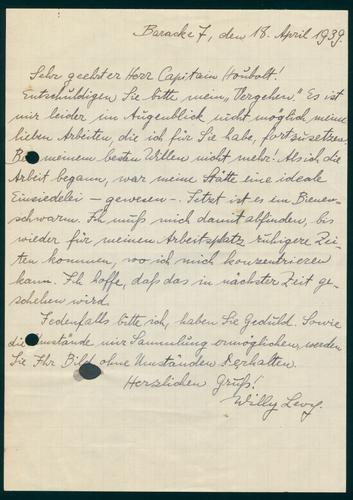 Baracke 7, den 18. April 1939.
Sehr geehrter Herr Capitain Houbolt!
Entschuldigen Sie bitte mein „Vergehen." Es ist
mir leider im Augenblick nicht möglich meine
lieben Arbeiten, die ich für Sie habe, fortzusetzen.
Bei meinem besten Willen nicht mehr! Als ich die
Arbeit begann, war meine Stätte eine ideale
Einsiedelei – gewesen –. Jetzt ist es ein Bienen-
schwarm. Ich muß mich damit abfinden, bis
wieder für meinen Arbeitsplatz ruhigere Zei-
ten kommen, wo ich mich konzentrieren
kann. Ich hoffe, daß das in nächster Zeit ge-
schehen wird.
Jedenfalls bitte ich, haben Sie Geduld. Sowie
die Umstände mir Sammlung ermöglichen, werden
Sie Ihr Bild ohne Umständen erhalten.
Herzlichen Gruß!
Willy Levy.